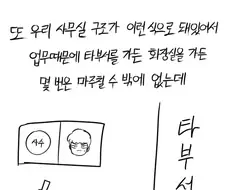 또 우리 사무실 구조가 이런 식으로 돼있어서
업무때문에 타부서를 가든 화장실을 가든
몇 번은 마주칠 수 밖에 없는데
A4
타부서